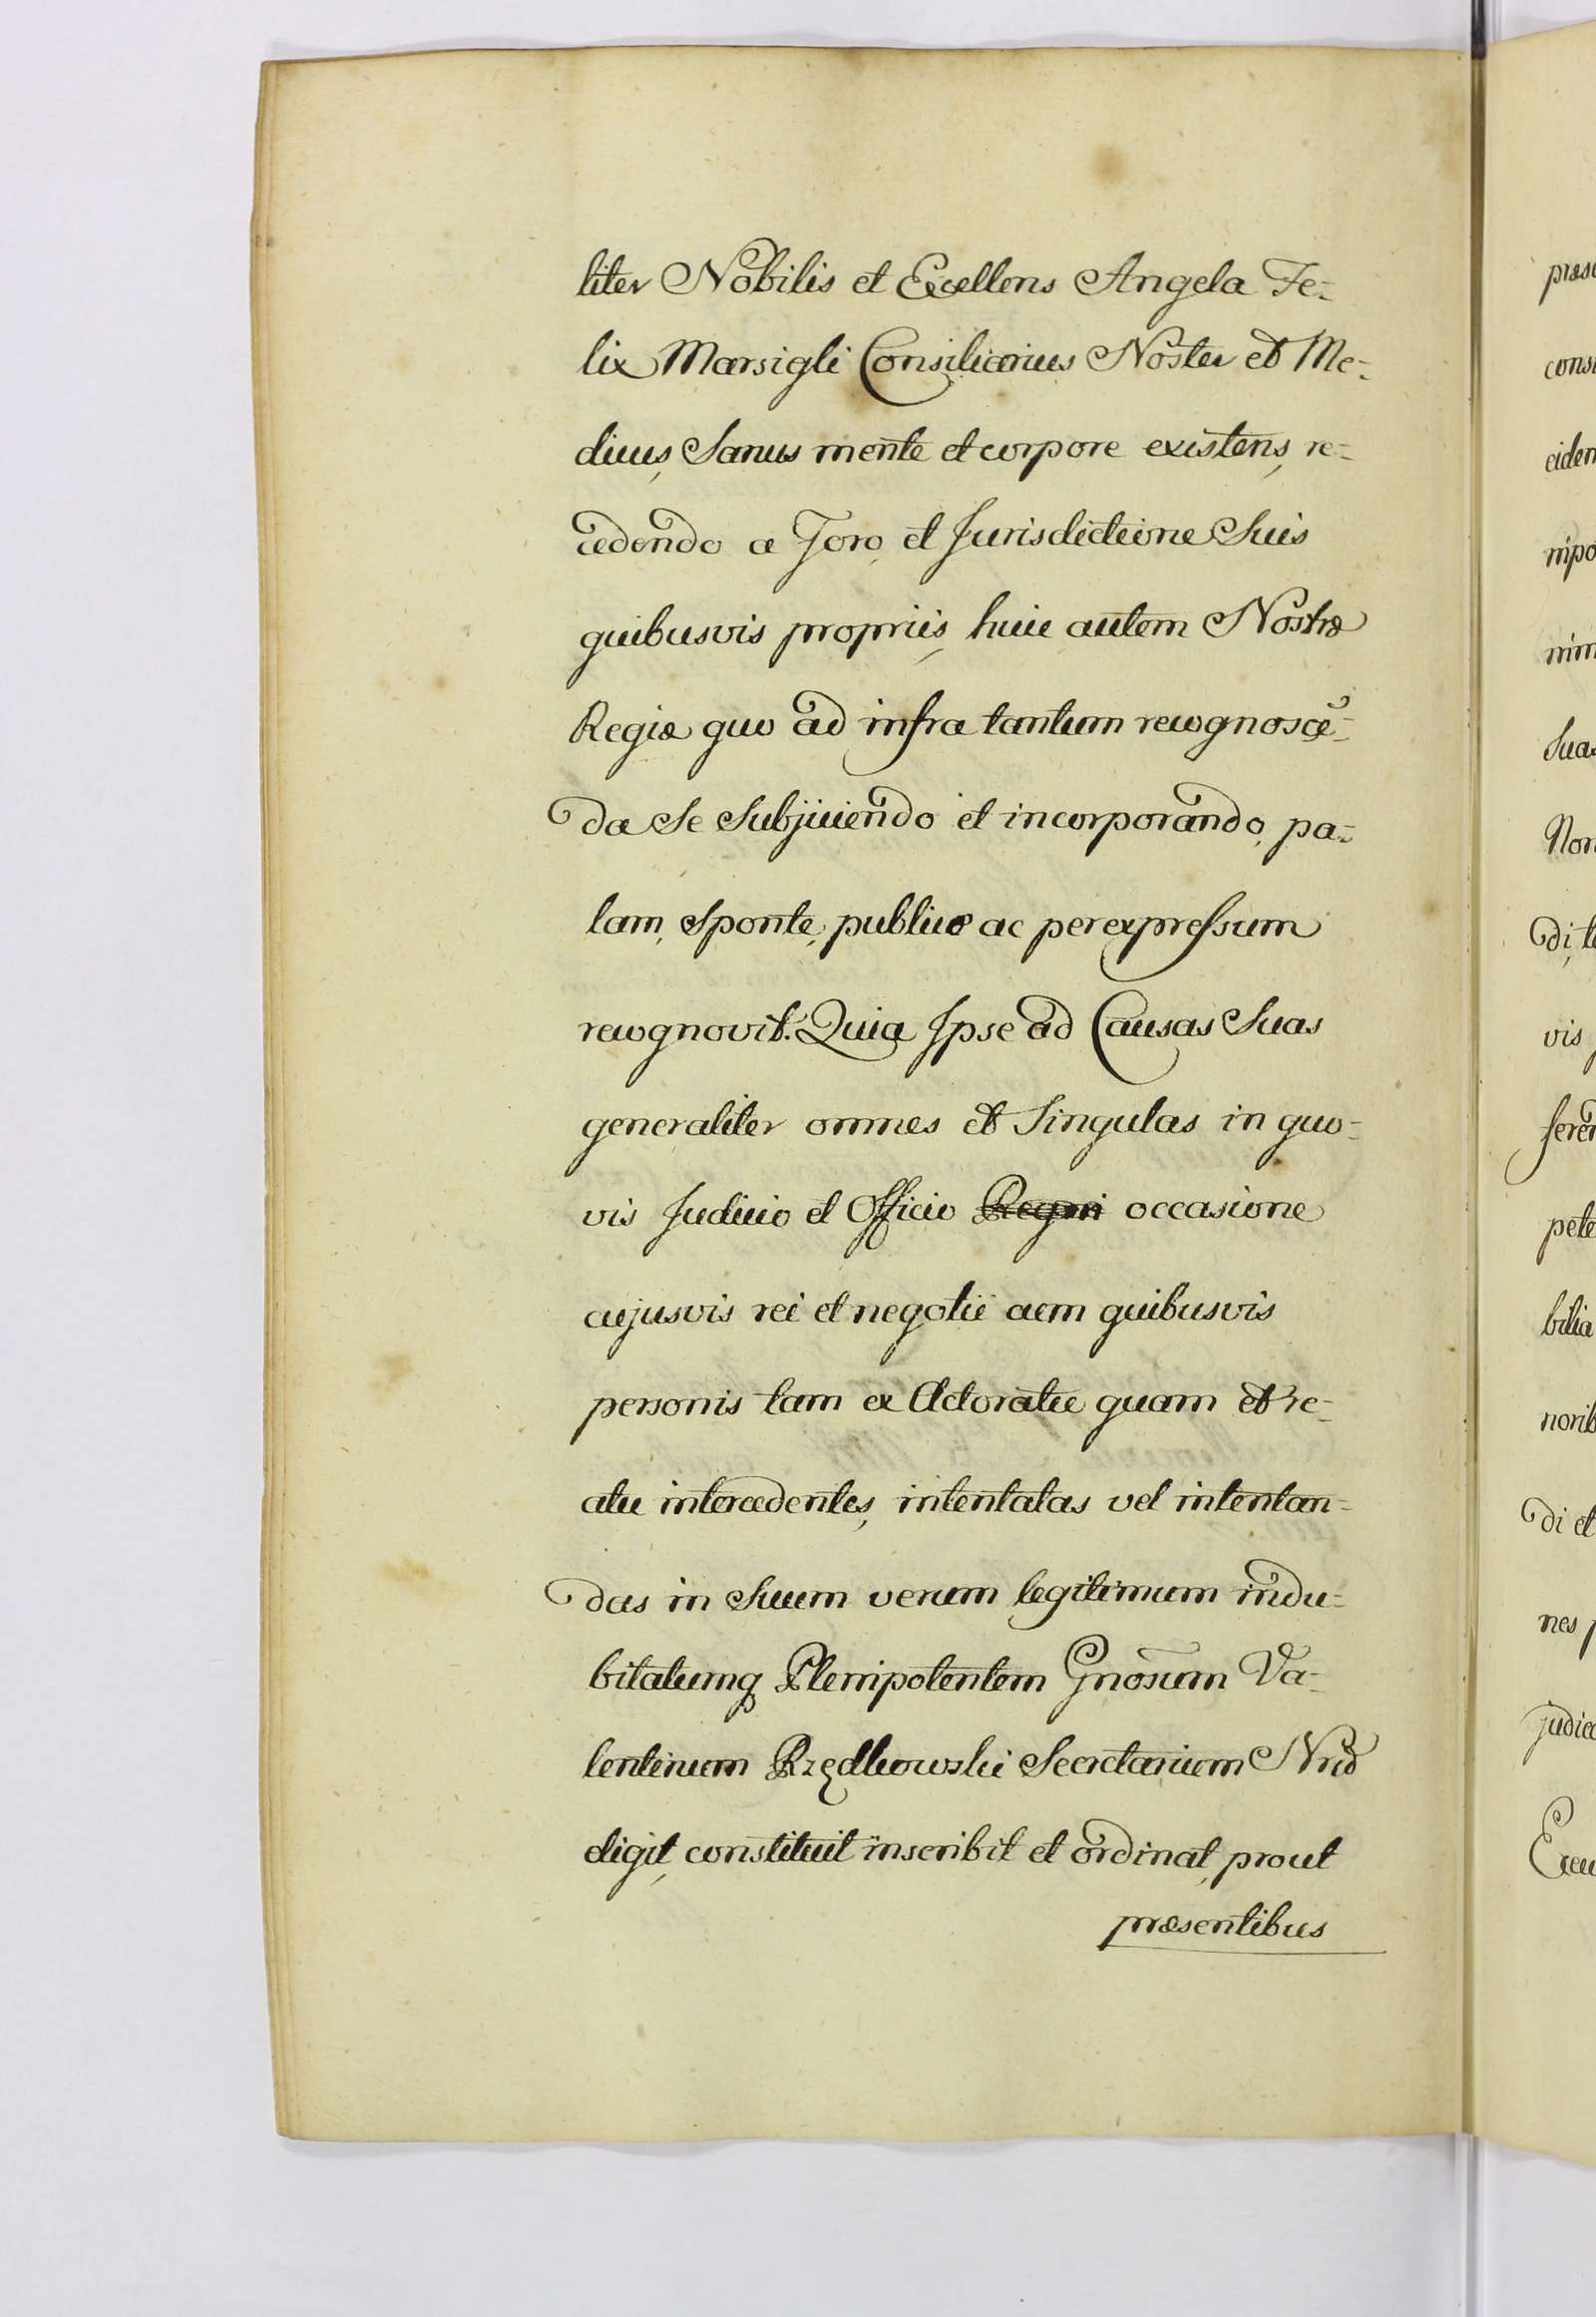 liter Nobilis et Excellens Angela Fe-
lix Marsigli Consiliarius Noster et Me-
dicus, Sanus mente et corpore existens, re-
cedendo a Foro, et Jurisdictione Suis
quibusvis propriis, huic autem Nostræ
Regiæ quo ad infra tantum recognoscē-
da Se Subjiciendo et incorporando, pa-
lam, Sponte, publice ac per expressum
recognovit. Quia Ipse ad Causas Suas
generaliter omnes et Singulas in quo-
vis Judicio et Officio Regni occasione
cujusvis rei et negotii cum quibusvis
personis tam ex Actoratu quam et re-
atu intercedentes, intentatas vel intentan-
das in Suum verum legitimum indu-
bitatumq Plenipotentem Gnosum Va-
lentinum Rzędkowski Secretarium Nrū
eligit, constituit inscribit et ordinat, prout
præsentibus
præse
cons
eiden
nipo
nim
Suas
Non
di, te
vis
feren
pete
bilia
norib
di et
nes p
judica
Execu